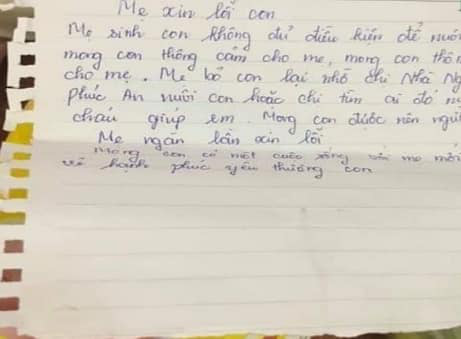 Mẹ xin lỗi con
Mẹ sinh con không đủ điều kiện để nuôi
mong con thông cảm cho mẹ, mong con thôn
cho mẹ. Mẹ bỏ con lại nhờ chị Nhã Ng
phúc An nuôi con hoặc chị tìm ai đó n
cháu giúp em. Mong con được nên ngư
Mẹ ngàn lần xin lỗi
mong con có một cuộc sống với mẹ mới
về hạnh phúc yêu thương con